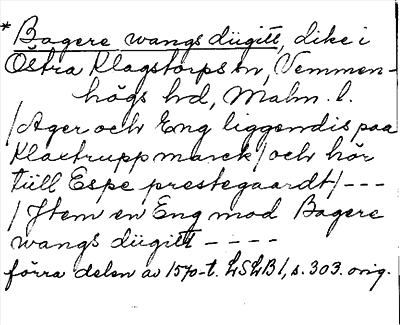 * Bagere wangs dügitt, dike i
Östra Klagstorps sn, Vemmen-
högs hd, Malm. l.
/Ager och Eng liggendis paa
Klaxtrupp marck/ och hör
tüll Espe prestegaardt/ ---
/Jtem en Eng mod Bagere
wangs dügitt ----
förra delen av 1570-t. LSLB 1, s. 303. orig.